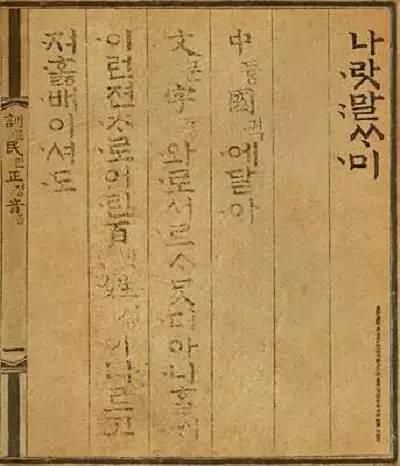 나랏말ᄊᆞ미
中듕國귁에달아
文문字ᄍᆞᆼ와로서르ᄉᆞᄆᆞᆺ디아니ᄒᆞᆯᄊᆡ
이런젼ᄎᆞ로어린百ᄇᆡᆨ姓셩이니르고
져홇배이셔도
訓훈民민正졍音ᅙᅳᆷ
一